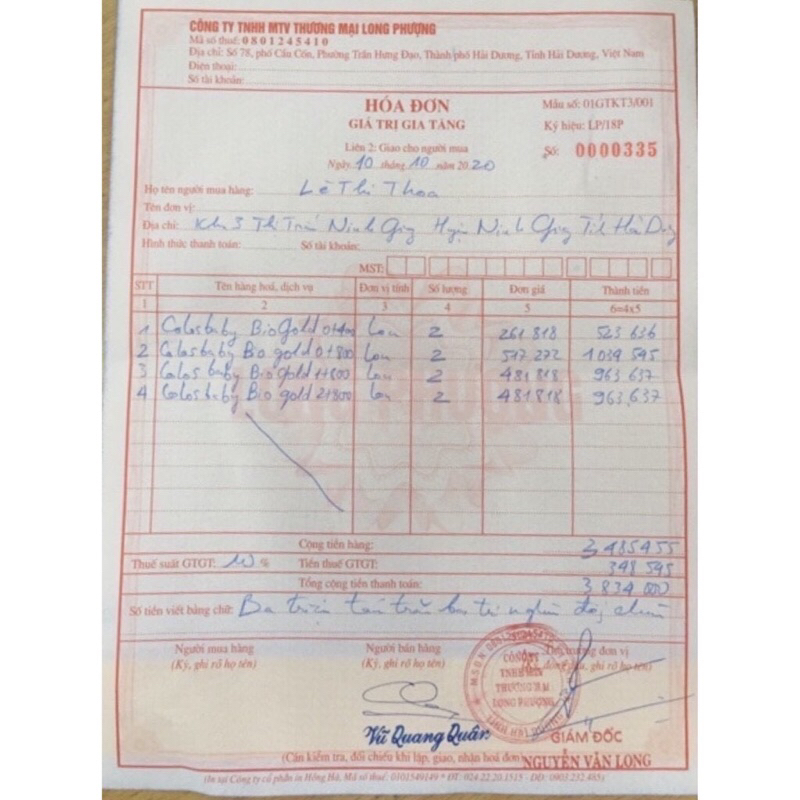 CÔNG TY TNHH MTV THƯƠNG MẠI LONG PHƯỢNG
Mã số thuế: 0801245410
Địa chỉ: Số 78, phố Cầu Cốn, Phường Trần Hưng Đạo, Thành phố Hải Dương, Tỉnh Hải Dương, Việt Nam
Điện thoại:
Số tài khoản:
HÓA ĐƠN
GIÁ TRỊ GIA TĂNG
Mẫu số: 01GTKT3/001
Ký hiệu: LP/18P
Liên 2: Giao cho người mua
Số: 0000335
Ngày 10 tháng 10 năm 2020
Họ tên người mua hàng: Lê Thị Thoa
Tên đơn vị:
Địa chỉ: Khu 3 Thị Trấn Ninh Giang Huyện Ninh Giang Tỉnh Hải Dương
Hình thức thanh toán: Số tài khoản:
MST:
STT Tên hàng hoá, dịch vụ Đơn vị tính Số lượng Đơn giá Thành tiền
1 2 3 4 5 6=4x5
1 Colosbaby BioGold 0+400 Lon 2 261 818 523 636
2 Colosbaby Bio gold 0+800 Lon 2 517 272 1 034 545
3 Colosbaby Bio gold 1+800 Lon 2 481 818 963 637
4 Colosbaby Bio gold 2+800 Lon 2 481 818 963,637
Cộng tiền hàng: 3 485 455
Thuế suất GTGT: 10 % Tiền thuế GTGT: 348 545
Tổng cộng tiền thanh toán: 3 834 000
Số tiền viết bằng chữ: Ba triệu tám trăm ba tư nghìn đồng chẵn
Người mua hàng Người bán hàng Thủ trưởng đơn vị
(Ký, ghi rõ họ tên) (Ký, ghi rõ họ tên) đóng dấu, ghi rõ họ tên)
M.S.D.N: 0801245410
CÔNG TY
TNHH MTV
THƯƠNG MẠI
LONG PHƯỢNG
Vũ Quang Quân
GIÁM ĐỐC
NGUYỄN VĂN LONG
(Cần kiểm tra, đối chiếu khi lập, giao, nhận hoá đơn
(In tại Công ty cổ phần in Hồng Hà, Mã số thuế: 0101549149 * ĐT: 024.22.20.1515 - DĐ: 0903 232 485)